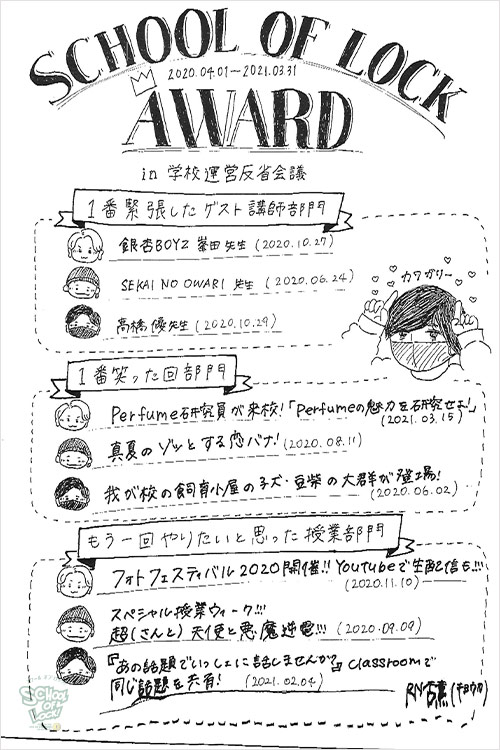 SCHOOL OF LOCK
2020.04.01〜2021.03.31
AWARD
in 学校運営反省会議
1番緊張したゲスト講師部門
銀杏BOYZ 峯田先生 (2020.10.27)
SEKAI NO OWARI 先生 (2020.06.24)
高橋優先生 (2020.10.29)
カワガリー
1番笑った回部門
Perfume研究員が来校!「Perfumeの魅力を研究せよ!」
(2021.03.15)
真夏のゾッとする恋バナ! (2020.08.11)
我が校の飼育小屋の子犬・豆柴の大群が登場!
(2020.06.02)
もう一回やりたいと思った授業部門
フォトフェスティバル2020開催!! Youtubeで生配信も!!!
(2020.11.10)
スペシャル授業ウィーク!!!
超(さんと) 天使と悪魔逆電!!! (2020.09.09)
『あの話題でいっしょに話しませんか?』classroomで
同じ話題を共有! (2021.02.04)
SCHOOL OF LOCK!